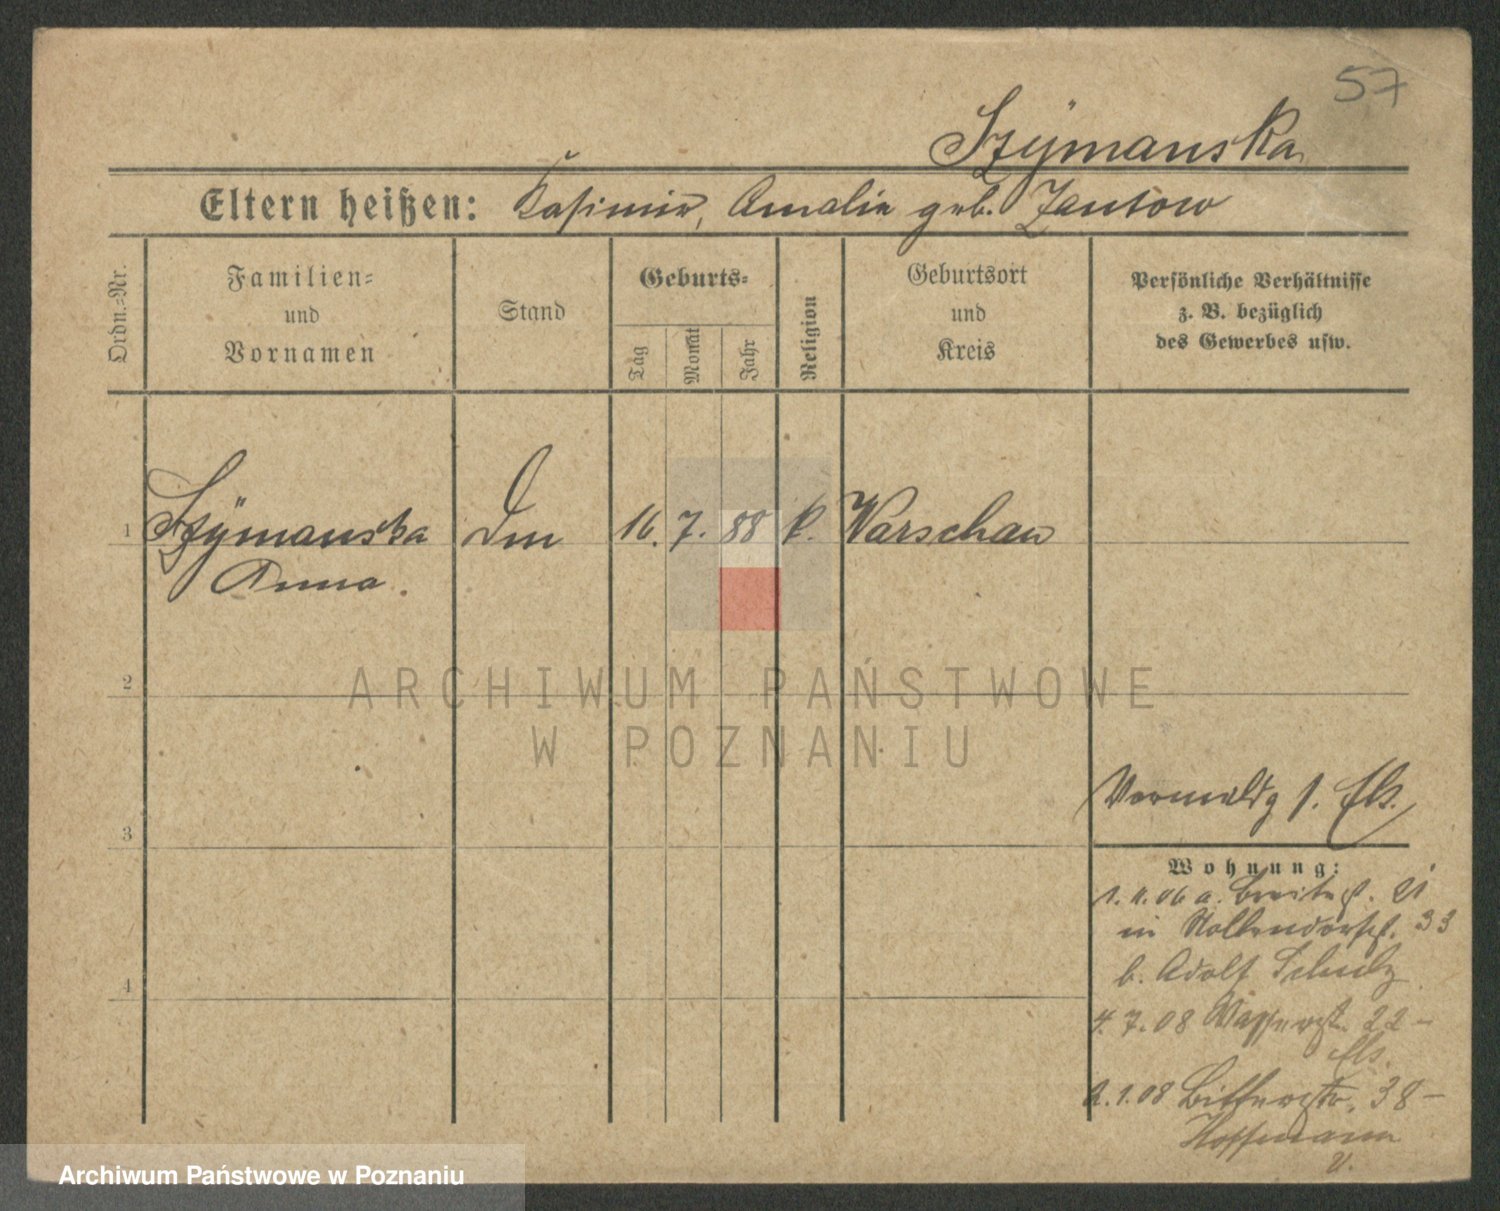 57
Szÿmanska
Eltern heißen: Kasimir, Amalie geb. Zantow
Ordn.-Nr.
Familien-
und
Vornamen
Stand
Geburts-
Tag
Monat
Jahr
Religion
Geburtsort
und
Kreis
Persönliche Verhältnisse
z. B. bezüglich
des Gewerbes usw.
1 Szÿmanska 16. 7. 88 k. Warschau
Anna.
2
ARCHIWUM PAŃSTWOWE
W POZNANIU
3
Wohnung:
1. 06 a. 21
in 33
b. Adolf Schulz
4
4. 7. 08 22 –
1. 08 38 –
Hoffmann
Archiwum Państwowe w Poznaniu